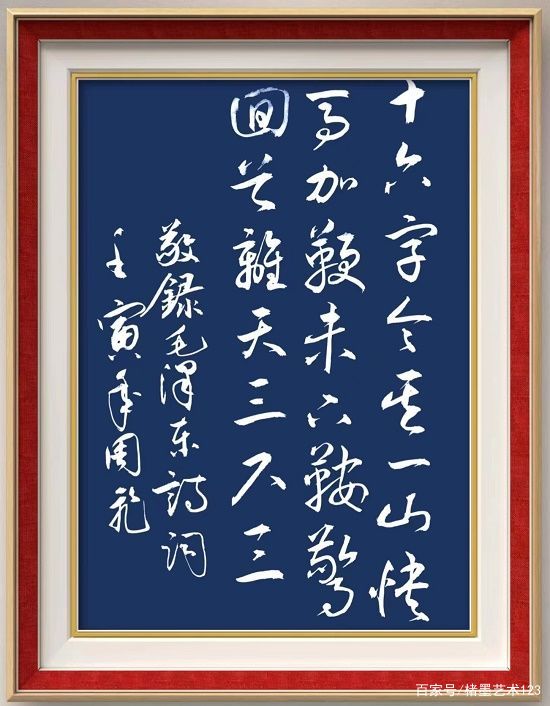 十六字令其一山快
马加鞭未下鞍驚
回首離天三尺三
敬録毛泽东詩词
壬寅年周
百家号/楮墨艺术123